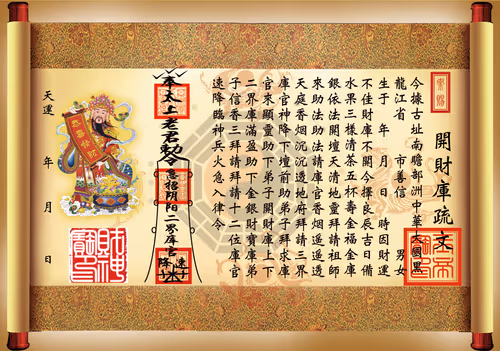 開財庫疏文
今據古址南瞻部洲中華大國黑
龍江省 市善信 男女
生于 年 月 日 時因財運
不佳財庫不開今擇良辰吉日備
水果三樣清茶五杯壽金福金庫
銀依法開壇天清地靈拜請祖師
來助法助法請庫官香烟遙遙透
天庭香烟沉沉透地府拜請三界
庫官神降下壇前助弟子拜求庫
官來顯靈助下弟子開財庫上下
二界庫滿盈助下金銀財寶庫弟
子信香三拜請拜請十二位庫官
速降臨神兵火急入律令
奉太上老君勅令急招阴阳二界库官
速降
恭喜發財
天運 年 月 日
財神寶印